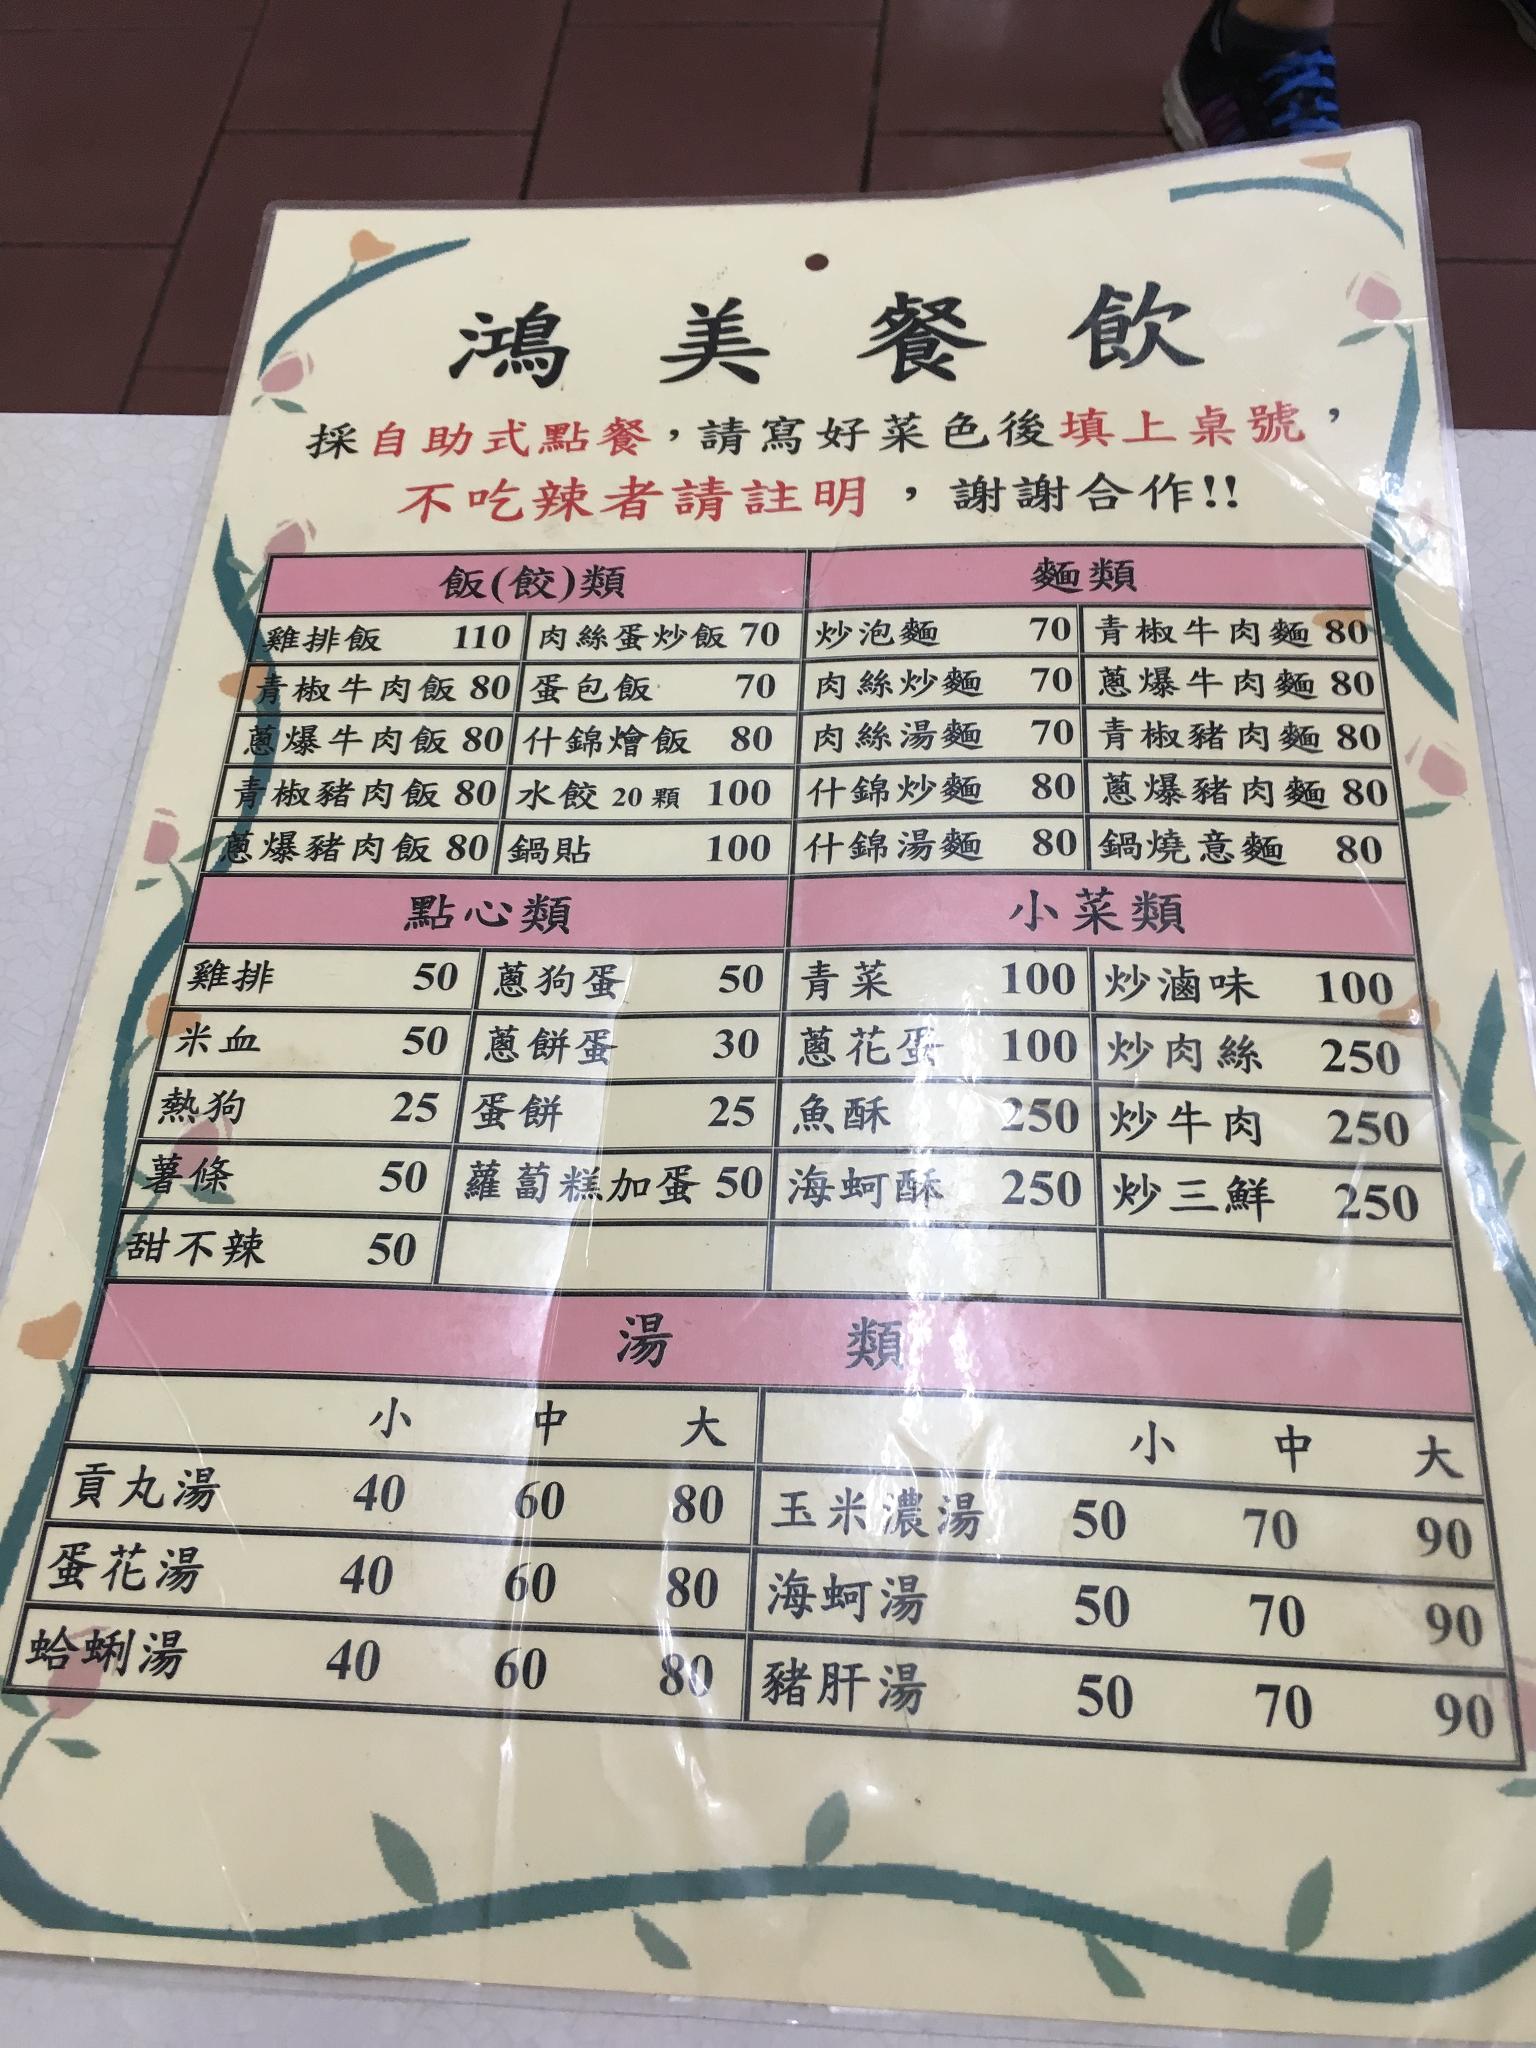 鴻美餐飲
採自助式點餐，請寫好菜色後填上桌號，
不吃辣者請註明，謝謝合作!!
飯(餃)類 麵類
雞排飯 110 肉絲蛋炒飯 70 炒泡麵 70 青椒牛肉麵 80
青椒牛肉飯 80 蛋包飯 70 肉絲炒麵 70 蔥爆牛肉麵 80
蔥爆牛肉飯 80 什錦燴飯 80 肉絲湯麵 70 青椒豬肉麵 80
青椒豬肉飯 80 水餃 20 顆 100 什錦炒麵 80 蔥爆豬肉麵 80
蔥爆豬肉飯 80 鍋貼 100 什錦湯麵 80 鍋燒意麵 80
點心類 小菜類
雞排 50 蔥狗蛋 50 青菜 100 炒滷味 100
米血 50 蔥餅蛋 30 蔥花蛋 100 炒肉絲 250
熱狗 25 蛋餅 25 魚酥 250 炒牛肉 250
薯條 50 蘿蔔糕加蛋 50 海蚵酥 250 炒三鮮 250
甜不辣 50
湯類
小 中 大 小 中 大
貢丸湯 40 60 80 玉米濃湯 50 70 90
蛋花湯 40 60 80 海蚵湯 50 70 90
蛤蜊湯 40 60 80 豬肝湯 50 70 90